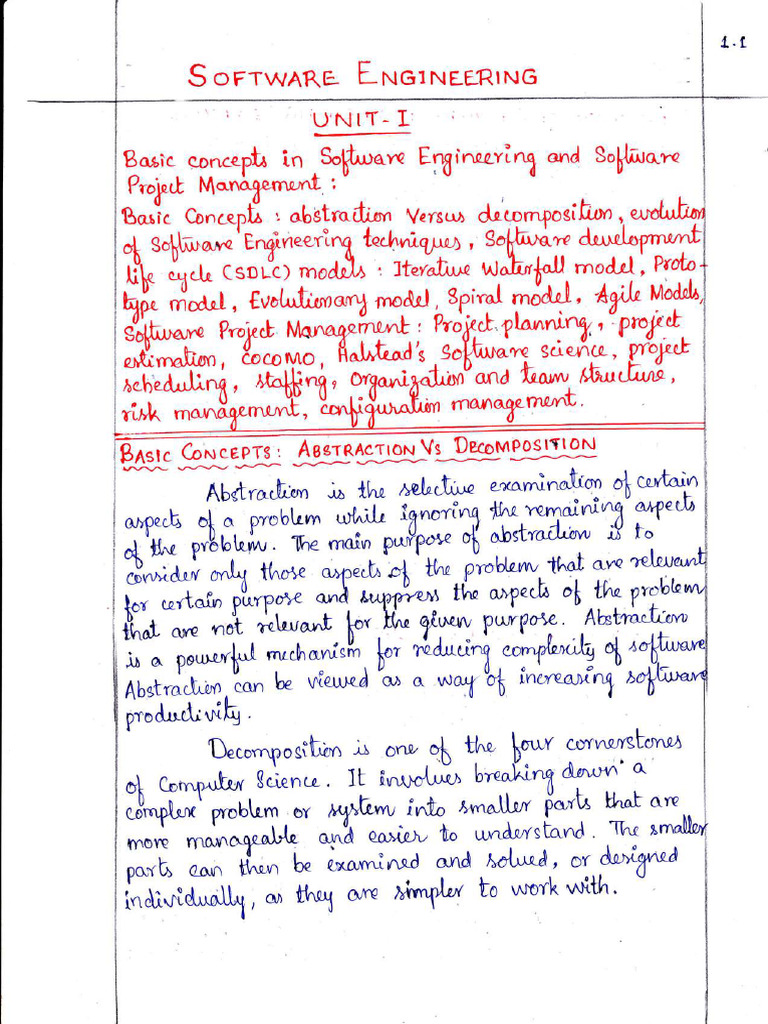 1.1
SOFTWARE ENGINEERING
UNIT-I
Basic concepts in Software Engineering and Software
Project Management :
Basic Concepts : abstraction Versus decomposition, evolution
of Software Engineering techniques, Software development
life cycle (SDLC) models : Iterative Waterfall model, Proto-
type model, Evolutionary model, Spiral model, Agile Models,
Software Project Management : Project planning, project
estimation, COCOMO, Halstead's Software science, project
scheduling, staffing, Organization and team structure,
risk management, configuration management.
BASIC CONCEPTS: ABSTRACTION VS DECOMPOSITION
Abstraction is the selective examination of certain
aspects of a problem while ignoring the remaining aspects
of the problem. The main purpose of abstraction is to
consider only those aspects of the problem that are relevant
for certain purpose and suppress the aspects of the problem
that are not relevant for the given purpose. Abstraction
is a powerful mechanism for reducing complexity of software
Abstraction can be viewed as a way of increasing software
productivity.
Decomposition is one of the four cornerstones
of Computer Science. It involves breaking down a
complex problem or system into smaller parts that are
more manageable and easier to understand. The smaller
parts can then be examined and solved, or designed
individually, as they are simpler to work with.